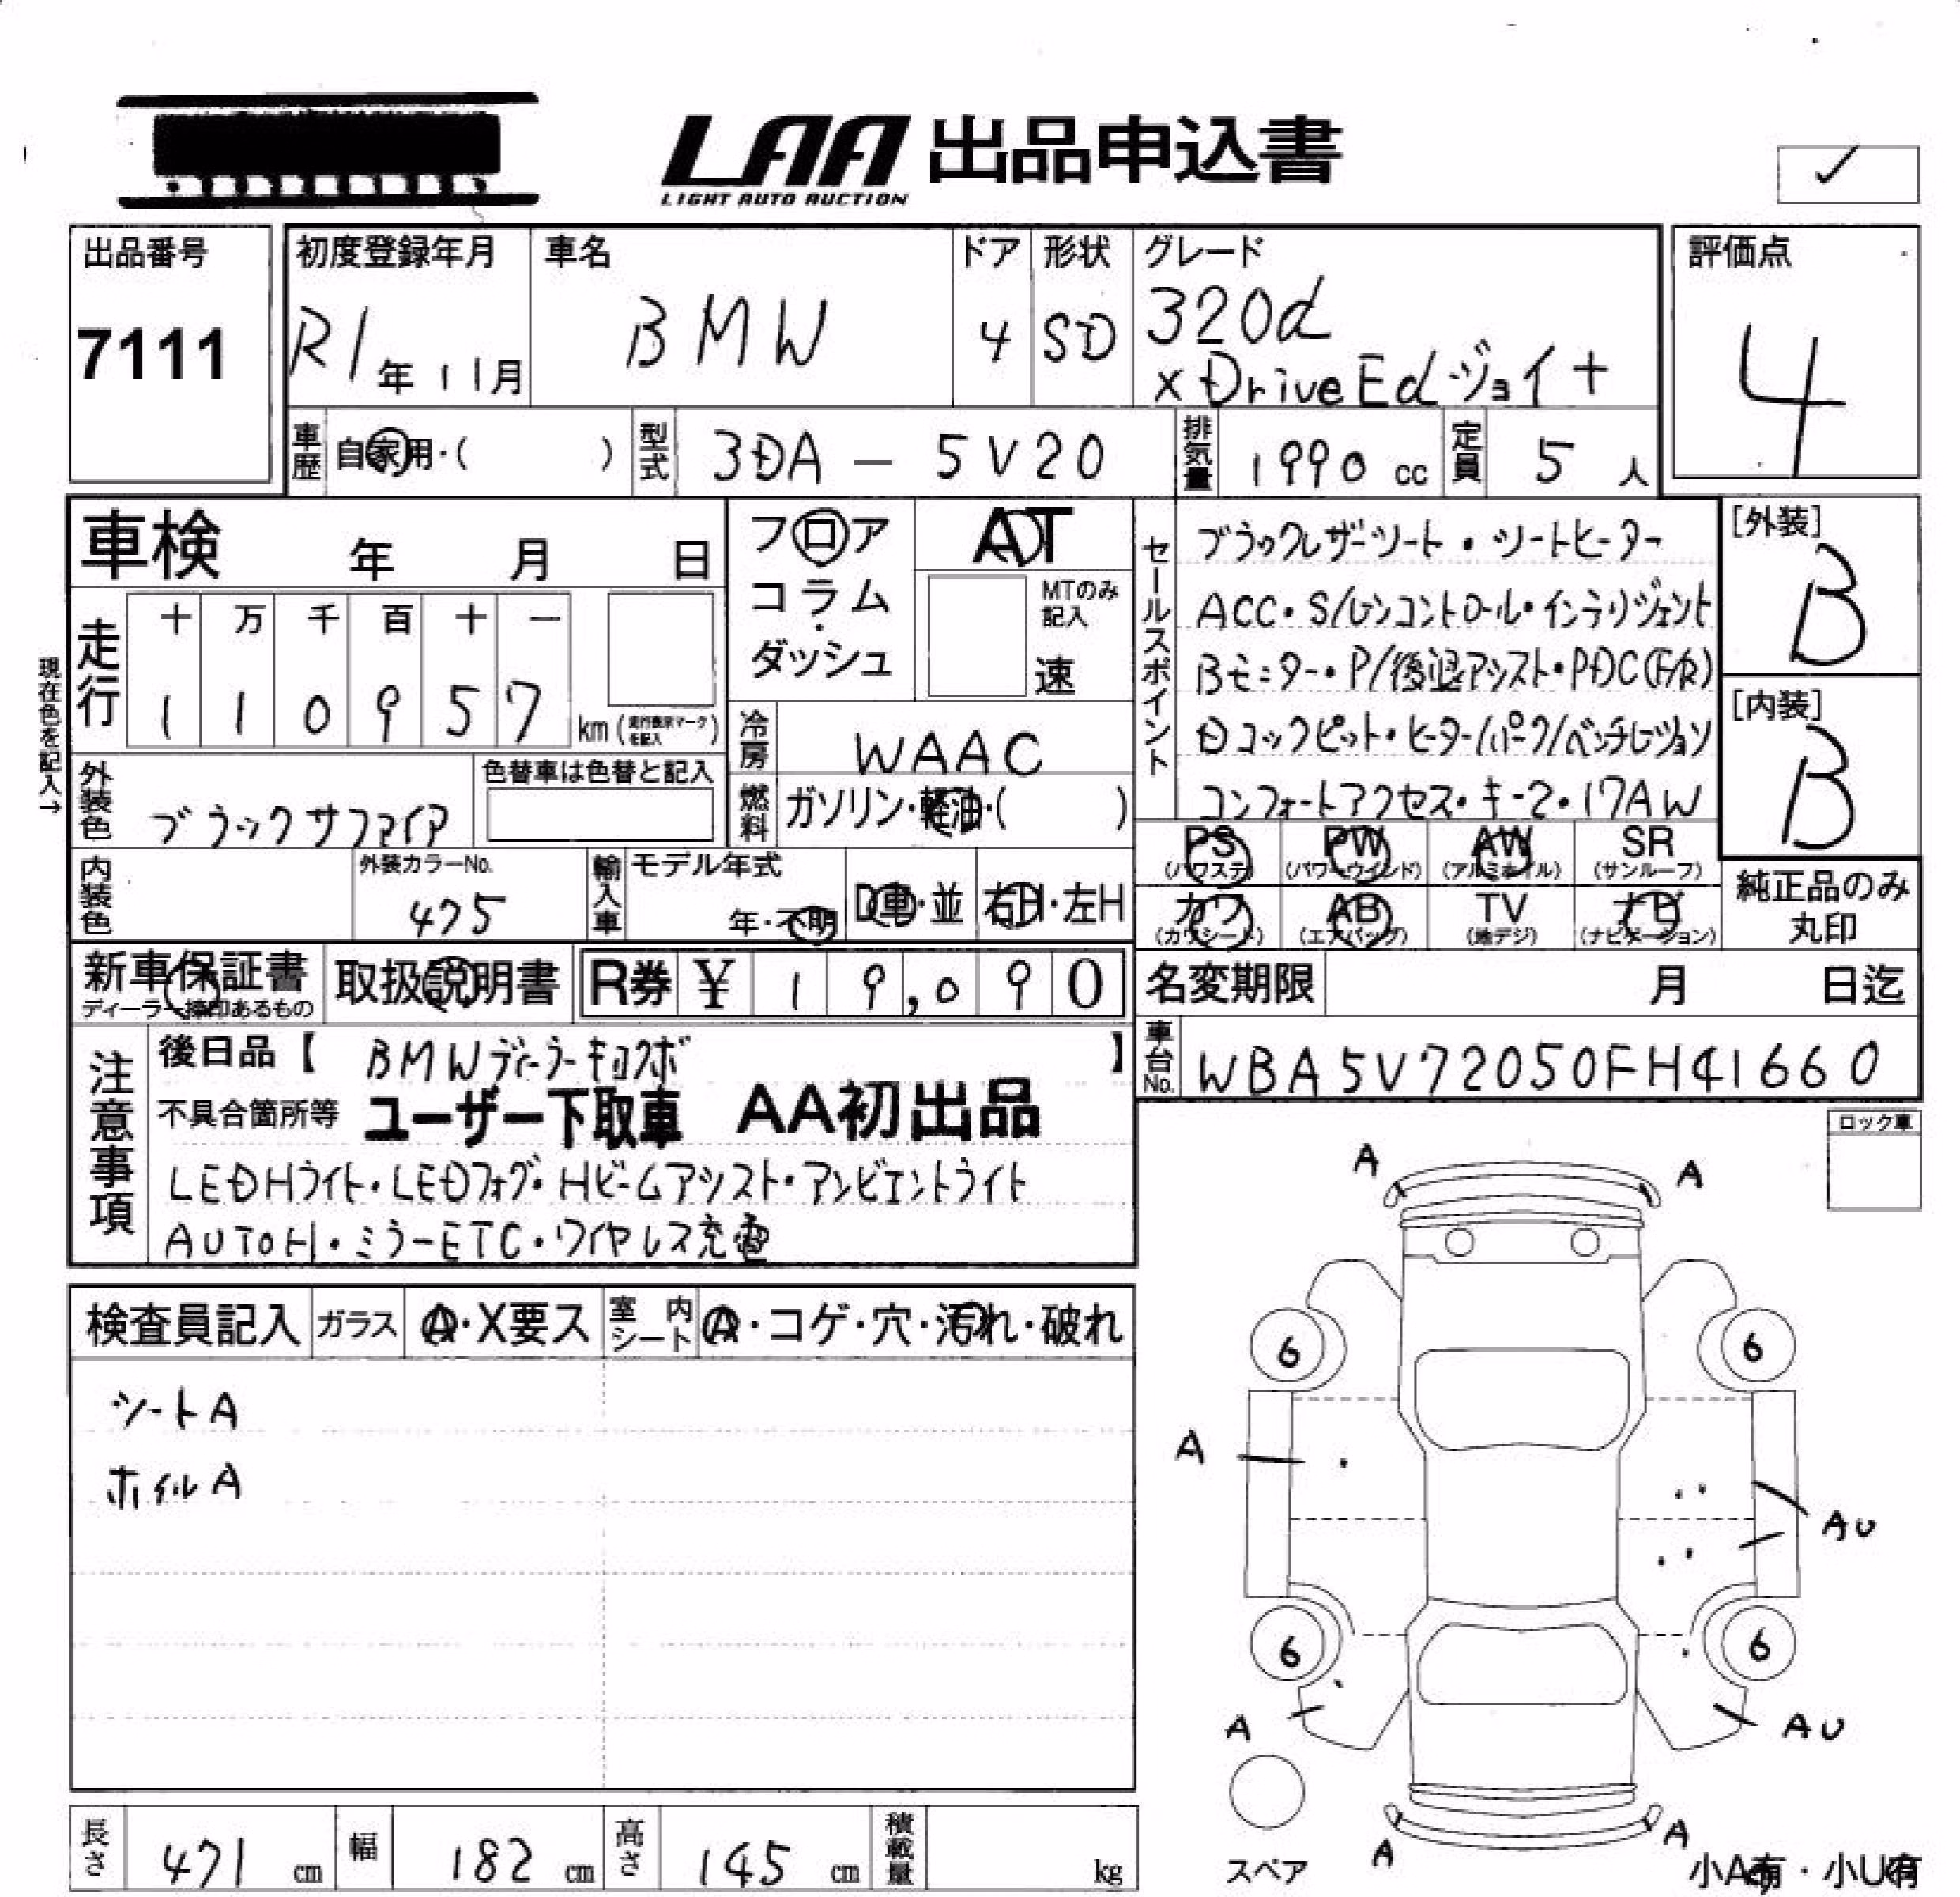 LAA 出品申込書
LIGHT AUTO AUCTION
✓
出品番号
7111
初度登録年月
R1年11月
車名
BMW
ドア
4
形状
SD
グレード
320d
xDriveEdジョイ+
評価点
4
車歴
自家用・( )
型式
3DA - 5V20
排気量
1990 cc
定員
5 人
車検 年 月 日
フロア
コラム
・
ダッシュ
AT
MTのみ
記入
速
セールスポイント
ブラックレザーシート・シートヒーター
ACC・S/レンコントロール・インテリジェント
Bモニター・P/後退アシスト・PDC(F/R)
Dコックピット・ヒーター/パーク/ベンチレーション
コンフォートアクセス・キー2・17AW
[外装]
B
[内装]
B
現在色を記入→
走行
十 万 千 百 十 一
1 1 0 9 5 7
km (走行表示マークを記入)
冷房
WAAC
外装色
ブラックサファイア
色替車は色替と記入
燃料
ガソリン・軽油・( )
PS
(パワステ)
PW
(パワーウインド)
AW
(アルミホイル)
SR
(サンルーフ)
内装色
外装カラーNo.
475
輸入車
モデル年式
年・不明
D車・並
右H・左H
カワ
(カワシート)
AB
(エアバッグ)
TV
(地デジ)
ナビ
(ナビゲーション)
純正品のみ
丸印
新車保証書
ディーラー捺印あるもの
取扱説明書
R券 ¥ 19,090
名変期限 月 日迄
注意事項
後日品【 BMWディーラーキロクボ 】
不具合箇所等 ユーザー下取車 AA初出品
LEDHライト・LEDフォグ・Hビームアシスト・アンビエントライト
AUTOH・ミラーETC・ワイヤレス充電
車台No.
WBA5V72050FH41660
ロック車
検査員記入
ガラス
A・X要ス
室内
シート
A・コゲ・穴・汚れ・破れ
シートA
ホイルA
A
A
6
6
A
AU
6
6
A
AU
A
A
スペア
小A有・小U有
長さ
471 cm
幅
182 cm
高さ
145 cm
積載量
kg